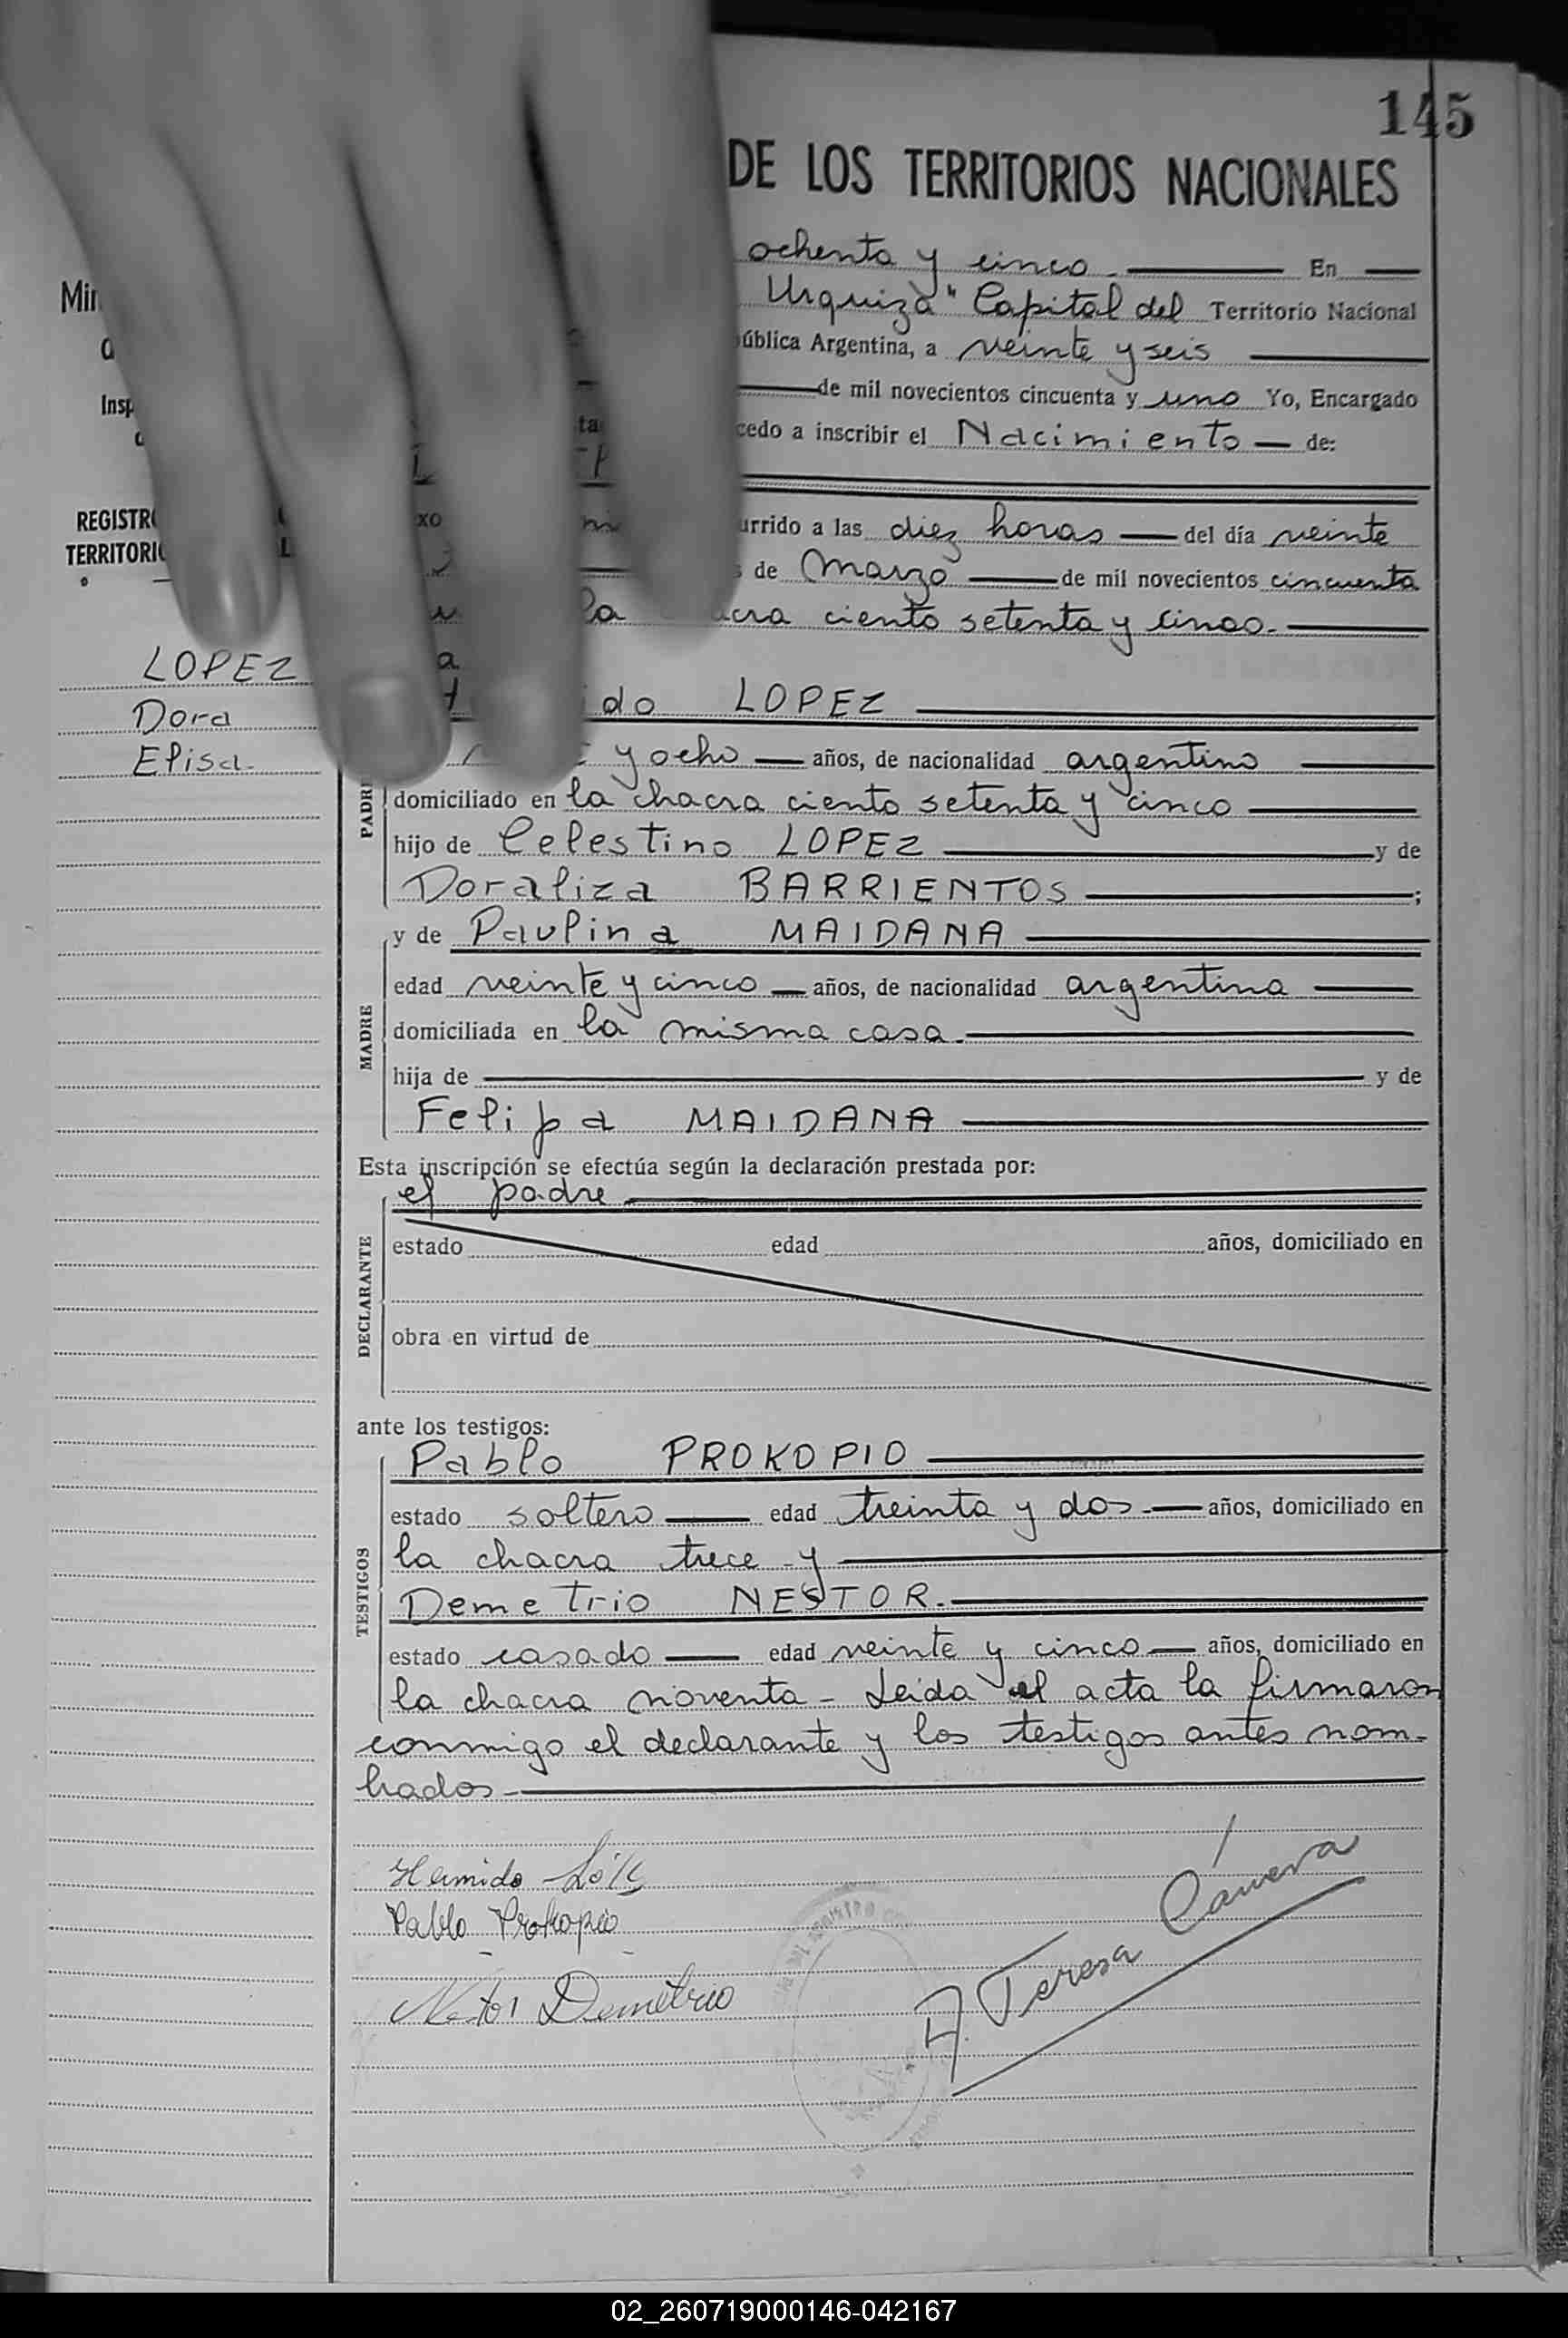 145
DE LOS TERRITORIOS NACIONALES
ochenta y cinco. En
Urquiza" Capital del Territorio Nacional
ública Argentina, a veinte y seis
de mil novecientos cincuenta y uno Yo, Encargado
cedo a inscribir el Nacimiento de:
urrido a las diez horas del día veinte
de Marzo de mil novecientos cincuenta
la ciento setenta y cinco.
REGISTR
TERRITORI
LOPEZ
Dora
Elisa.
do LOPEZ
y ocho años, de nacionalidad argentino
PADRE
domiciliado en la chacra ciento setenta y cinco
hijo de Celestino LOPEZ y de
Doraliza BARRIENTOS ;
y de Paulina MAIDANA
MADRE
edad veinte y cinco años, de nacionalidad argentina
domiciliada en la misma casa.
hija de y de
Felipa MAIDANA
Esta inscripción se efectúa según la declaración prestada por:
el padre
DECLARANTE
estado edad años, domiciliado en
obra en virtud de
ante los testigos:
Pablo PROKOPIO
TESTIGOS
estado soltero edad treinta y dos años, domiciliado en
la chacra trece y
Demetrio NESTOR.
estado casado edad veinte y cinco años, domiciliado en
la chacra noventa - Leida el acta la firmaron
conmigo el declarante y los testigos antes nom-
brados
Hermido López
Pablo Prokopio
Nestor Demetrio
A. Teresa Cáneva
02_260719000146-042167